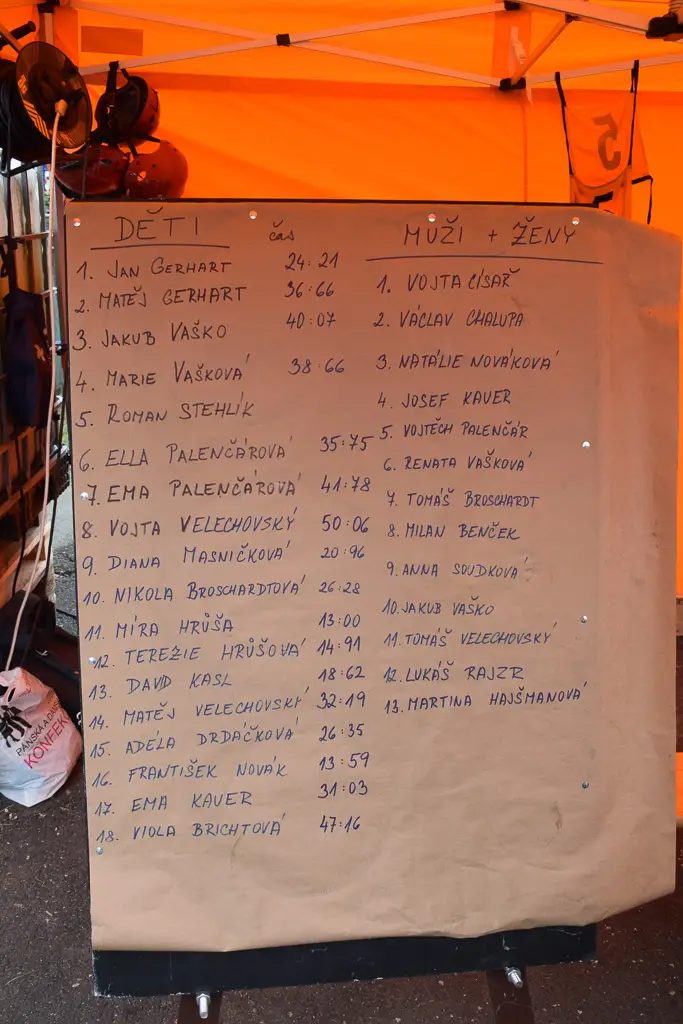 5
DĚTI
čas
1. JAN GERHART 24:21
2. MATĚJ GERHART 36:66
3. JAKUB VAŠKO 40:07
4. MARIE VAŠKOVÁ 38:66
5. ROMAN STEHLÍK
6. ELLA PALENČÁROVÁ 35:75
7. EMA PALENČÁROVÁ 41:78
8. VOJTA VELECHOVSKÝ 50:06
9. DIANA MASNIČKOVÁ 20:96
10. NIKOLA BROSCHARDTOVÁ 26:28
11. MÍRA HRŮŠA 13:00
12. TEREZIE HRŮŠOVÁ 14:91
13. DAVID KASL 18:62
14. MATĚJ VELECHOVSKÝ 32:19
15. ADÉLA DRDÁČKOVÁ 26:35
16. FRANTIŠEK NOVÁK 13:59
17. EMA KAUER 31:03
18. VIOLA BRICHTOVÁ 47:16
MUŽI + ŽENY
1. VOJTA CÍSAŘ
2. VÁCLAV CHALUPA
3. NATÁLIE NOVÁKOVÁ
4. JOSEF KAUER
5. VOJTĚCH PALENČÁR
6. RENATA VAŠKOVÁ
7. TOMÁŠ BROSCHARDT
8. MILAN BENČEK
9. ANNA SOUDKOVÁ
10. JAKUB VAŠKO
11. TOMÁŠ VELECHOVSKÝ
12. LUKÁŠ RAJZR
13. MARTINA HAJŠMANOVÁ
PÁNSKÁ A DÁMS
KONFEK